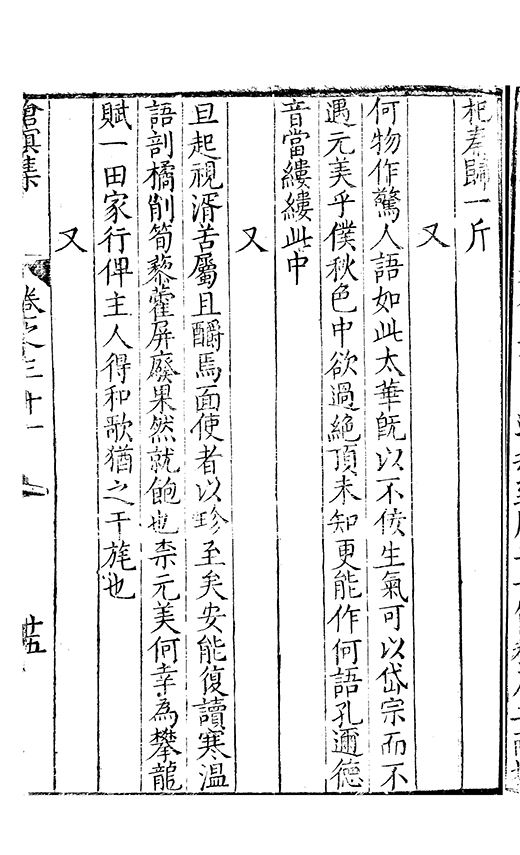 杞秦歸一斤
又
何物作驚人語如此太華旣以不倐生氣可以岱宗而不
遇元美乎僕秋色中欲過絶頂未知更能作何語孔邇德
音當縷縷此中
又
旦起視湑苦屬且酹焉面使者以軫至矣安能復讀寒温
語剖橘削筍藜藿屏廢果然就飽也柰元美何幸為攀龍
賦一田家行俾主人得和歌猶之干旄也
又
滄溟集
卷之三十一
十五